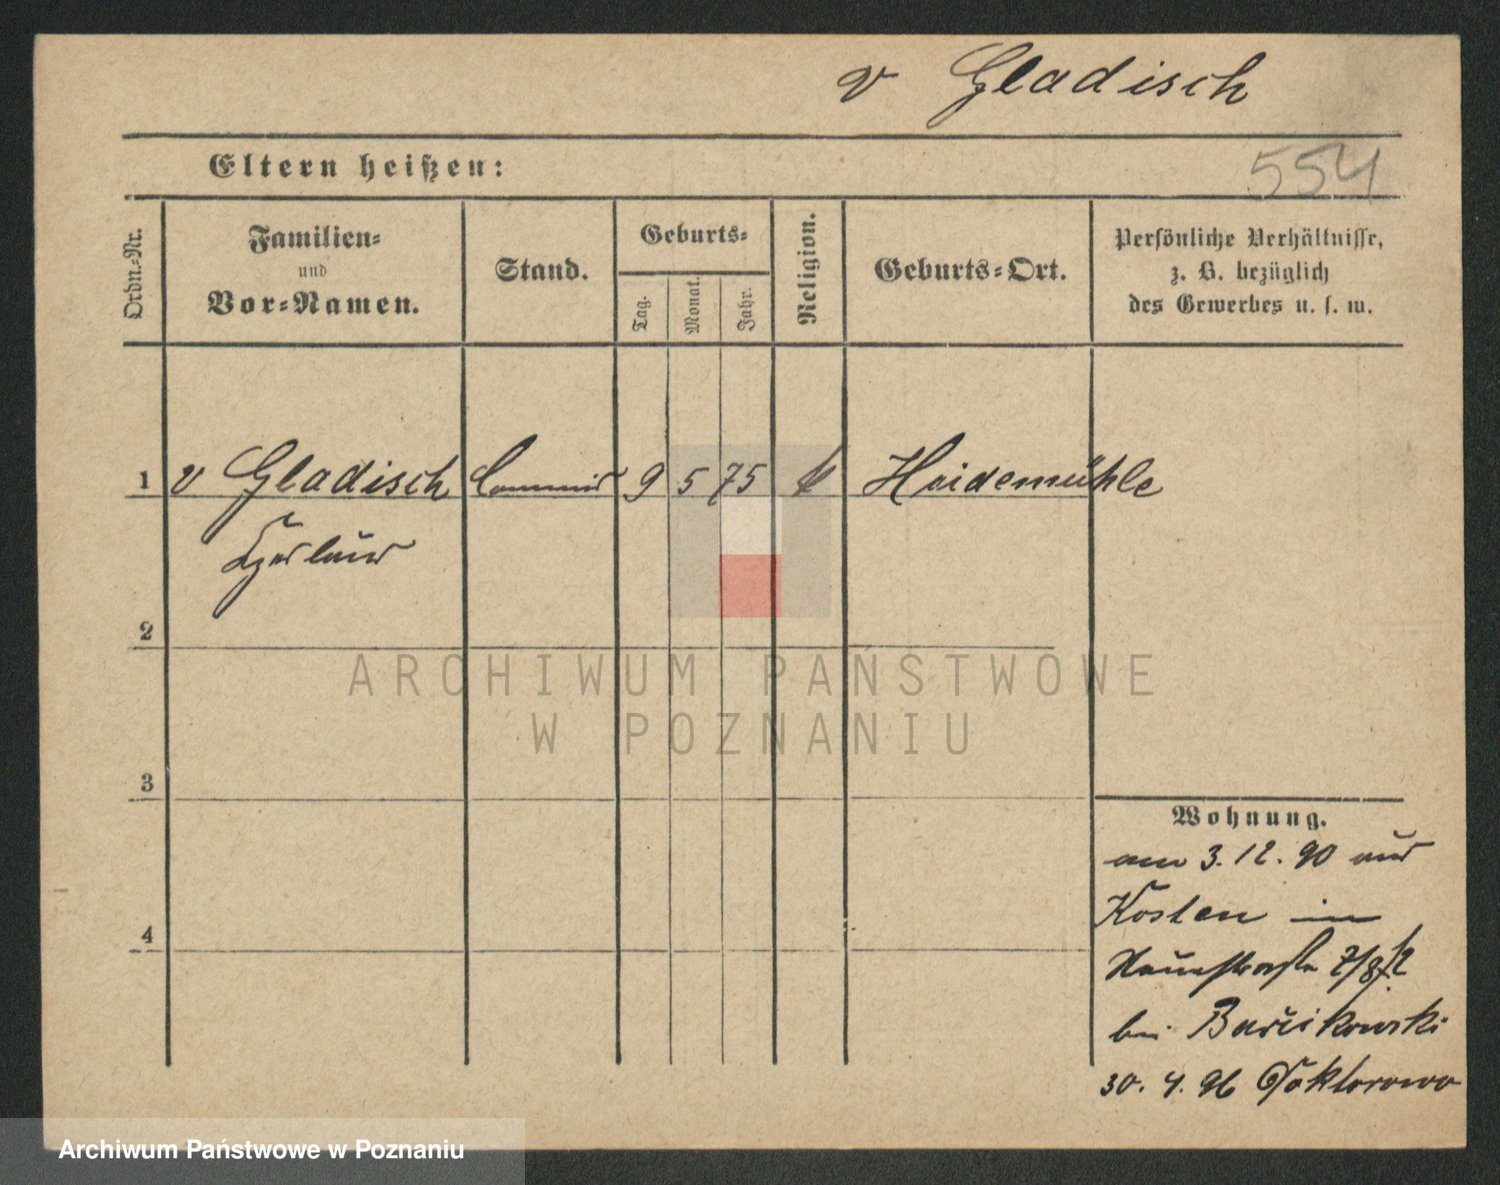 v Gladisch
Eltern heißen:
554
Ordn.-Nr.
Familien-
und
Vor-Namen.
Stand.
Geburts-
Tag.
Monat.
Jahr.
Religion.
Geburts-Ort.
Persönliche Verhältnisse,
z. B. bezüglich
des Gewerbes u. s. w.
1 v Gladisch Commis 9 5 75 Haidemühle
2
3
4
Wohnung.
am 3.12.90 aus
Kosten in
7/8
bei
30. 4. 96 Doktorowo
ARCHIWUM PAŃSTWOWE
W POZNANIU
Archiwum Państwowe w Poznaniu